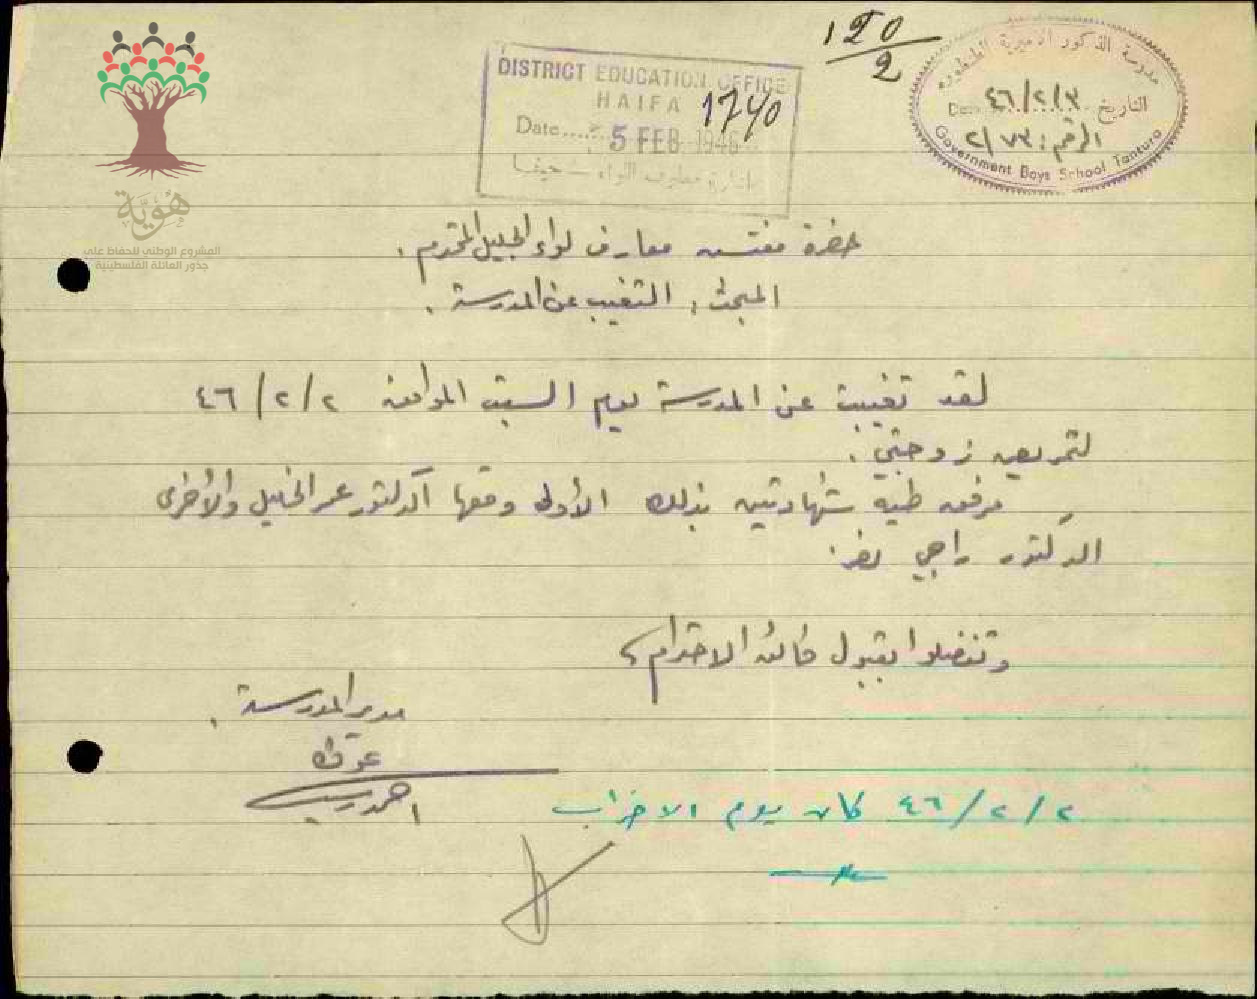 120/2
DISTRICT EDUCATION OFFICE
HAIFA
1740
Date.... 5 FEB 1946
ادارة معارف اللواء - حيفا
مدرسة الذكور الاميرية الطنطوره
التاريخ ٤٦/٢/٣
الرقم: ٢/٧٣
Government Boys School Tantura
هوية
المشروع الوطني للحفاظ على
جذور العائلة الفلسطينية
حضرة مفتش معارف لواء الجليل المحترم.
المبحث: التغيب عن المدرسة.
لقد تغيبت عن المدرسة يوم السبت الموافق ٤٦/٢/٢
لتمريض زوجتي.
مرفق طيه شهادتين بذلك الأولى وقعها الدكتور عمر الخليل والأخرى
الدكتور راجي نصر.
وتفضلوا بقبول فائق الاحترام،
مدير المدرسة.
احمد
٤٦/٢/٢ كان يوم الاضراب